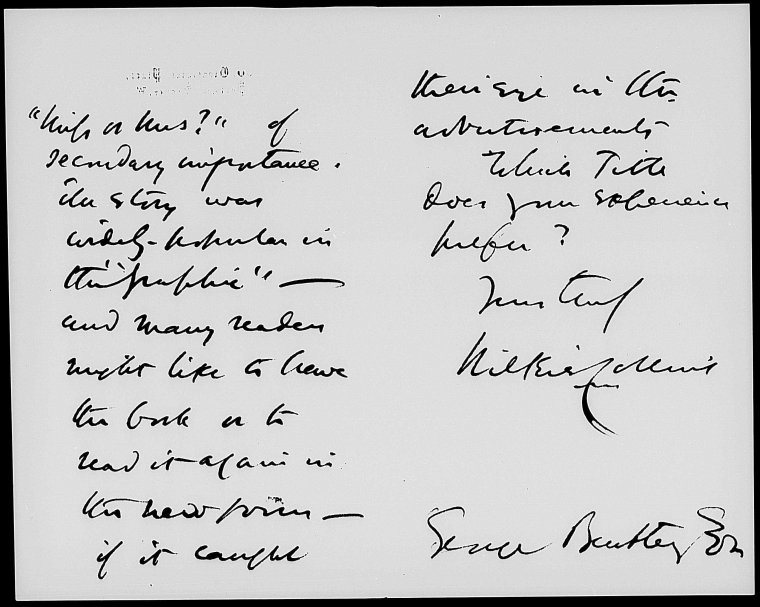 "Miss or Mrs?" of
secondary importance.
The story was
widely popular in
the "Graphic" —
and many readers
might like to have
the book or to
read it again in
the new form —
if it caught
their eye in the
advertisements
Which Title
does your experience
prefer?
Yours truly
Wilkie Collins
George Bentley Esq